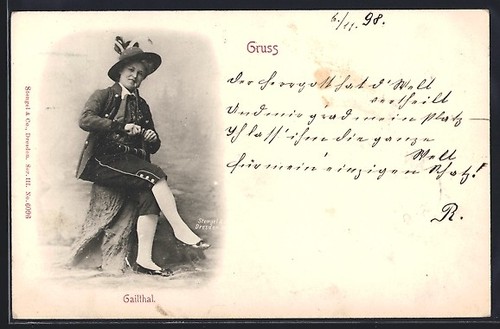 6./11. 98.
Gruss
Der Herrgott hat d' Welt
vertheilt
Und mir grad mein Platz –
Ich lass' ihm die ganze
Welt
für mein' einzigen Schatz!
R.
Stengel & Co., Dresden. Ser. III. No. 4098
Stengel &
Dresden
Gailthal.